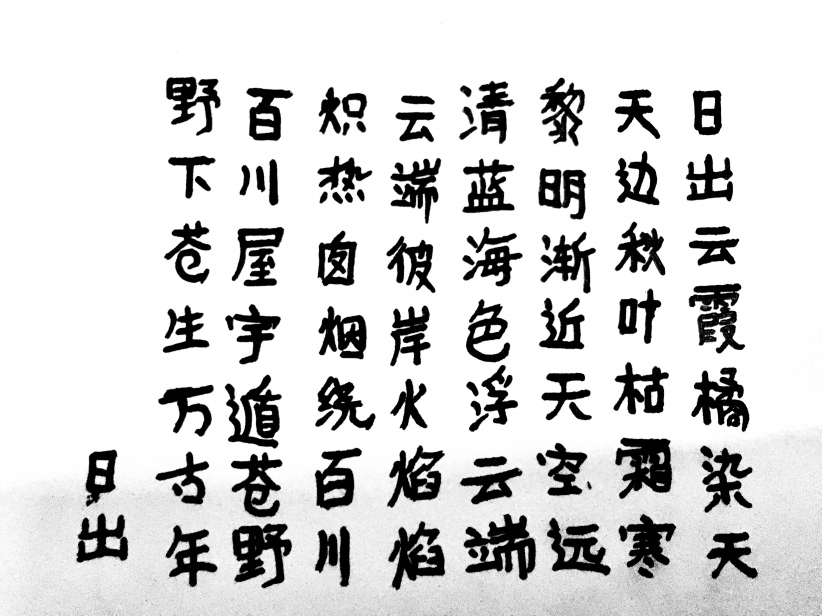 日出云霞橘染天
天边秋叶枯霜寒
黎明渐近天空远
清蓝海色浮云端
云端彼岸火焰焰
炽热囱烟绕百川
百川屋宇遁苍野
野下苍生万古年
日出